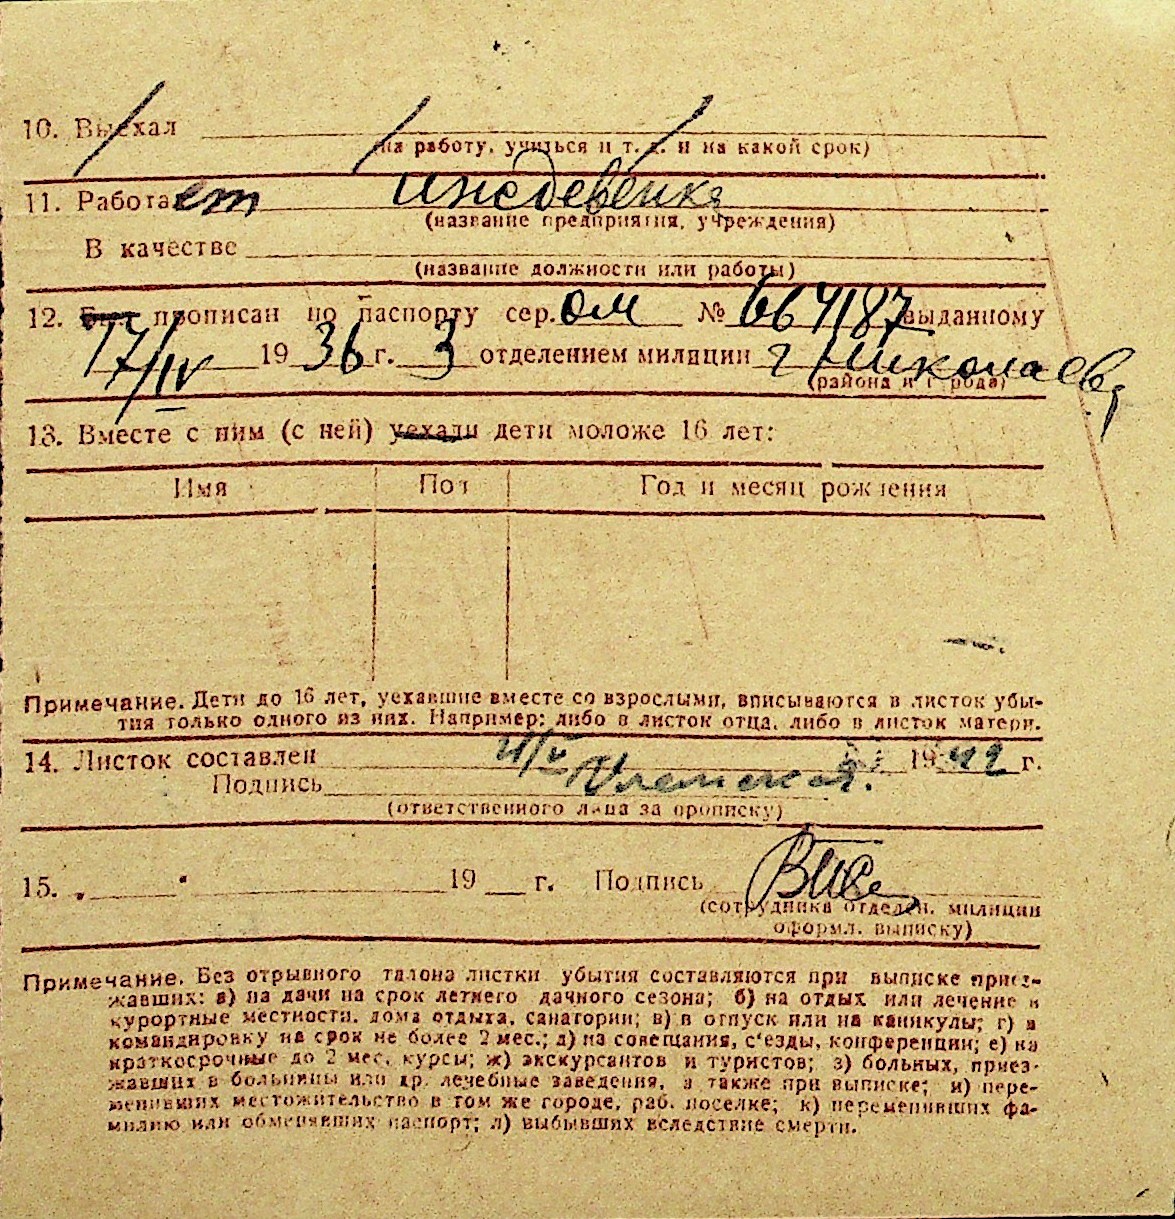 10. Выехал
(на работу, учиться и т. д. и на какой срок)
11. Работает иждевенка
(название предприятия, учреждения)
В качестве
(название должности или работы)
12. Был прописан по паспорту сер. ОМ № 664187 выданному
17/IV 1936 г. 3 отделением милиции г Николаев
(района и города)
13. Вместе с ним (с ней) уехали дети моложе 16 лет:
Имя Пол Год и месяц рождения
Примечание. Дети до 16 лет, уехавшие вместе со взрослыми, вписываются в листок убы-
тия только одного из них. Например: либо в листок отца, либо в листок матери.
14. Листок составлен 1942 г.
Подпись
(ответственного лица за прописку)
15. „ " 19 г. Подпись
(сотрудника отделен. милиции
оформл. выписку)
Примечание. Без отрывного талона листки убытия составляются при выписке приез-
жавших: а) на дачи на срок летнего дачного сезона; б) на отдых или лечение в
курортные местности, дома отдыха, санатории; в) в отпуск или на каникулы; г) в
командировку на срок не более 2 мес.; д) на совещания, с'езды, конференции; е) на
краткосрочные до 2 мес. курсы; ж) экскурсантов и туристов; з) больных, приез-
жавших в больницы или др. лечебные заведения, а также при выписке; и) пере-
менивших местожительство в том же городе, раб. поселке; к) переменивших фа-
милию или обменявших паспорт; л) выбывших вследствие смерти.